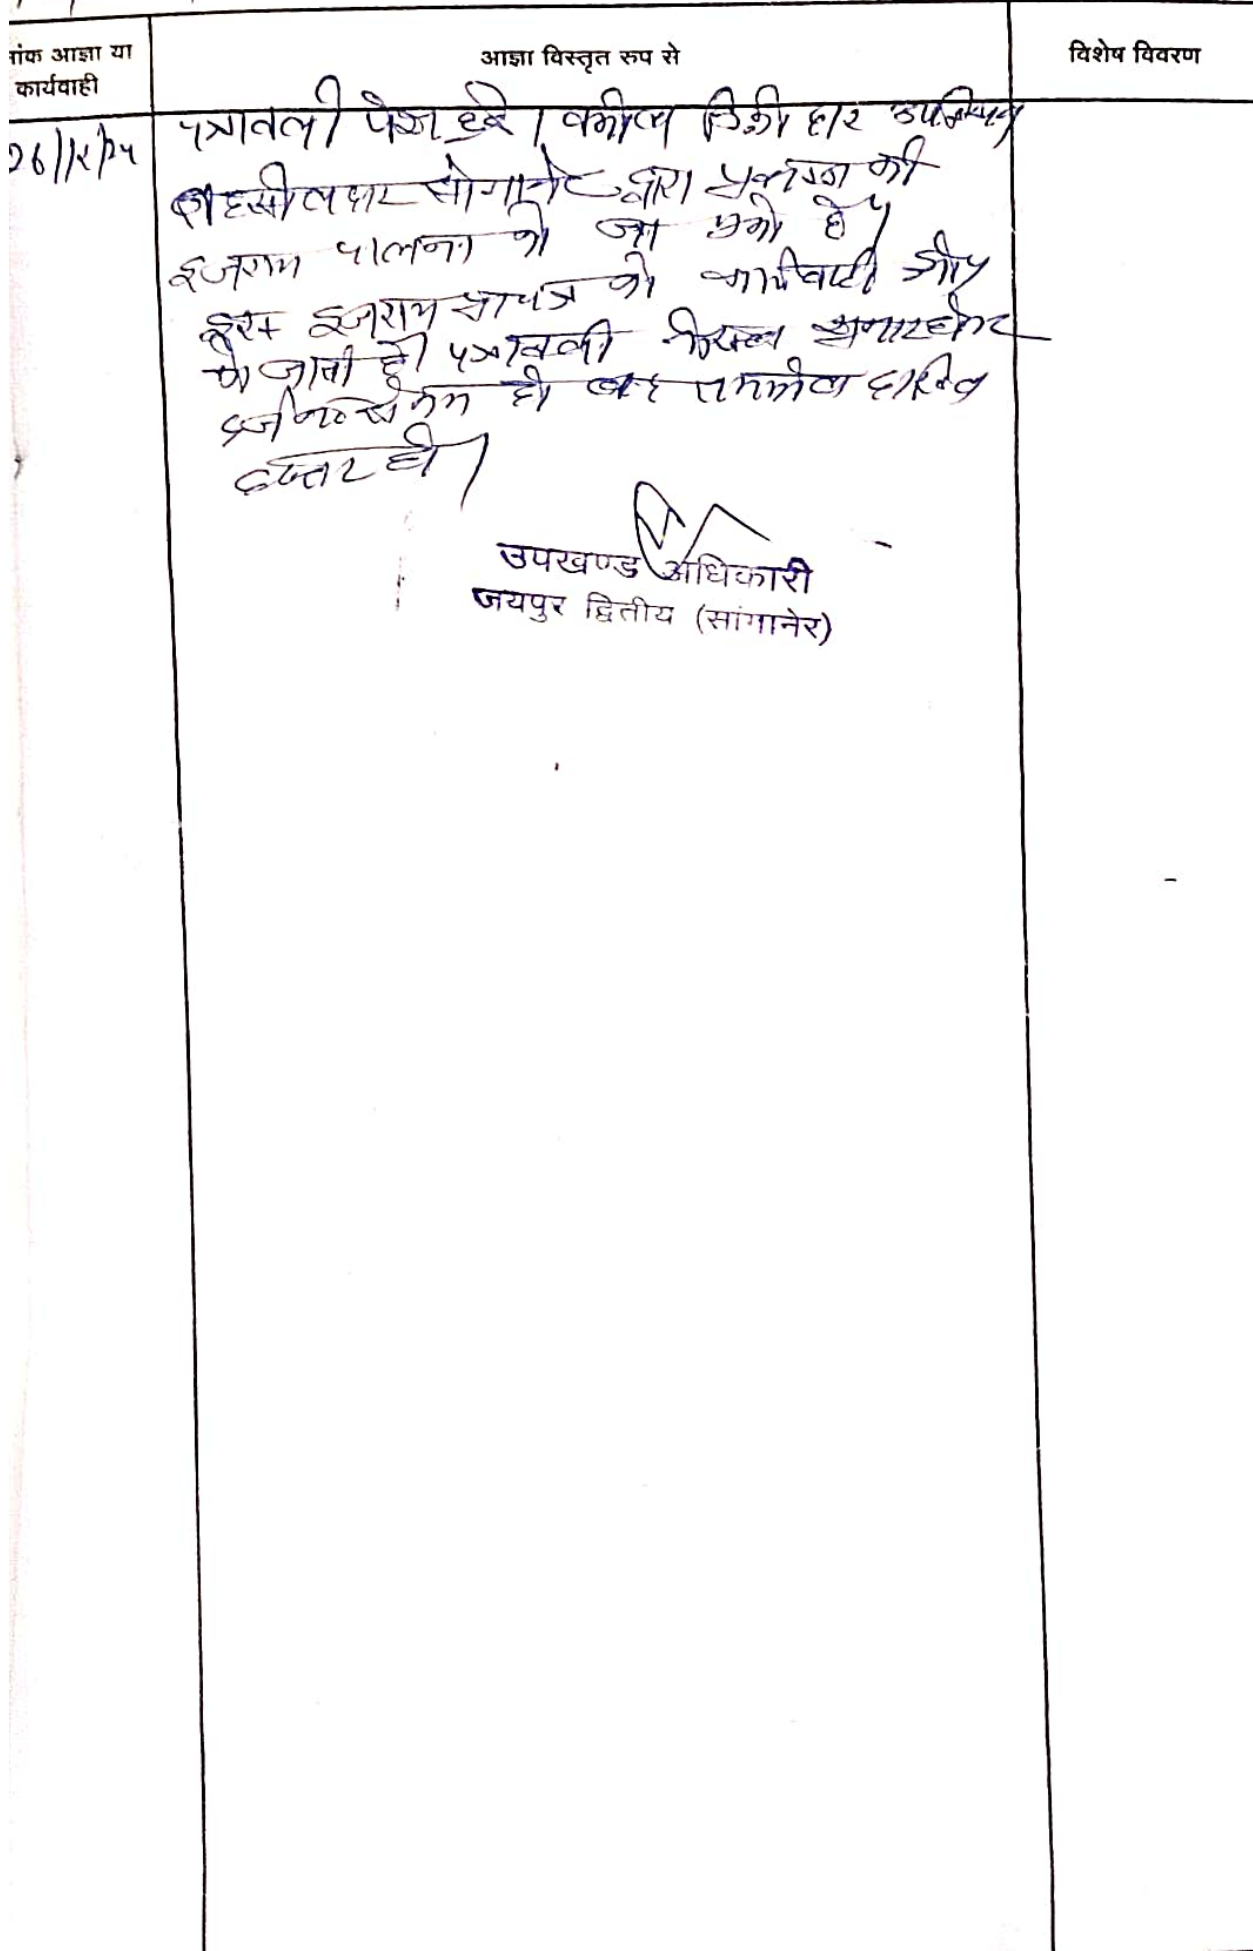 नांक आज्ञा या
कार्यवाही
आज्ञा विस्तृत रुप से
विशेष विवरण
26/12/24
पत्रावली पेश हुई। वकील डिक्रीदार उपस्थित
तहसीलदार सांगानेर द्वारा प्रकरण की
इजराय पालना की जा चुकी है।
इस इजराय प्रा पत्र की कार्यवाही
की जाती है। पत्रावली फैसल शुमार होकर
नम्बर से कम हो बाद तकमील दाखिल
दफ्तर हो।
उपखण्ड अधिकारी
जयपुर द्वितीय (सांगानेर)